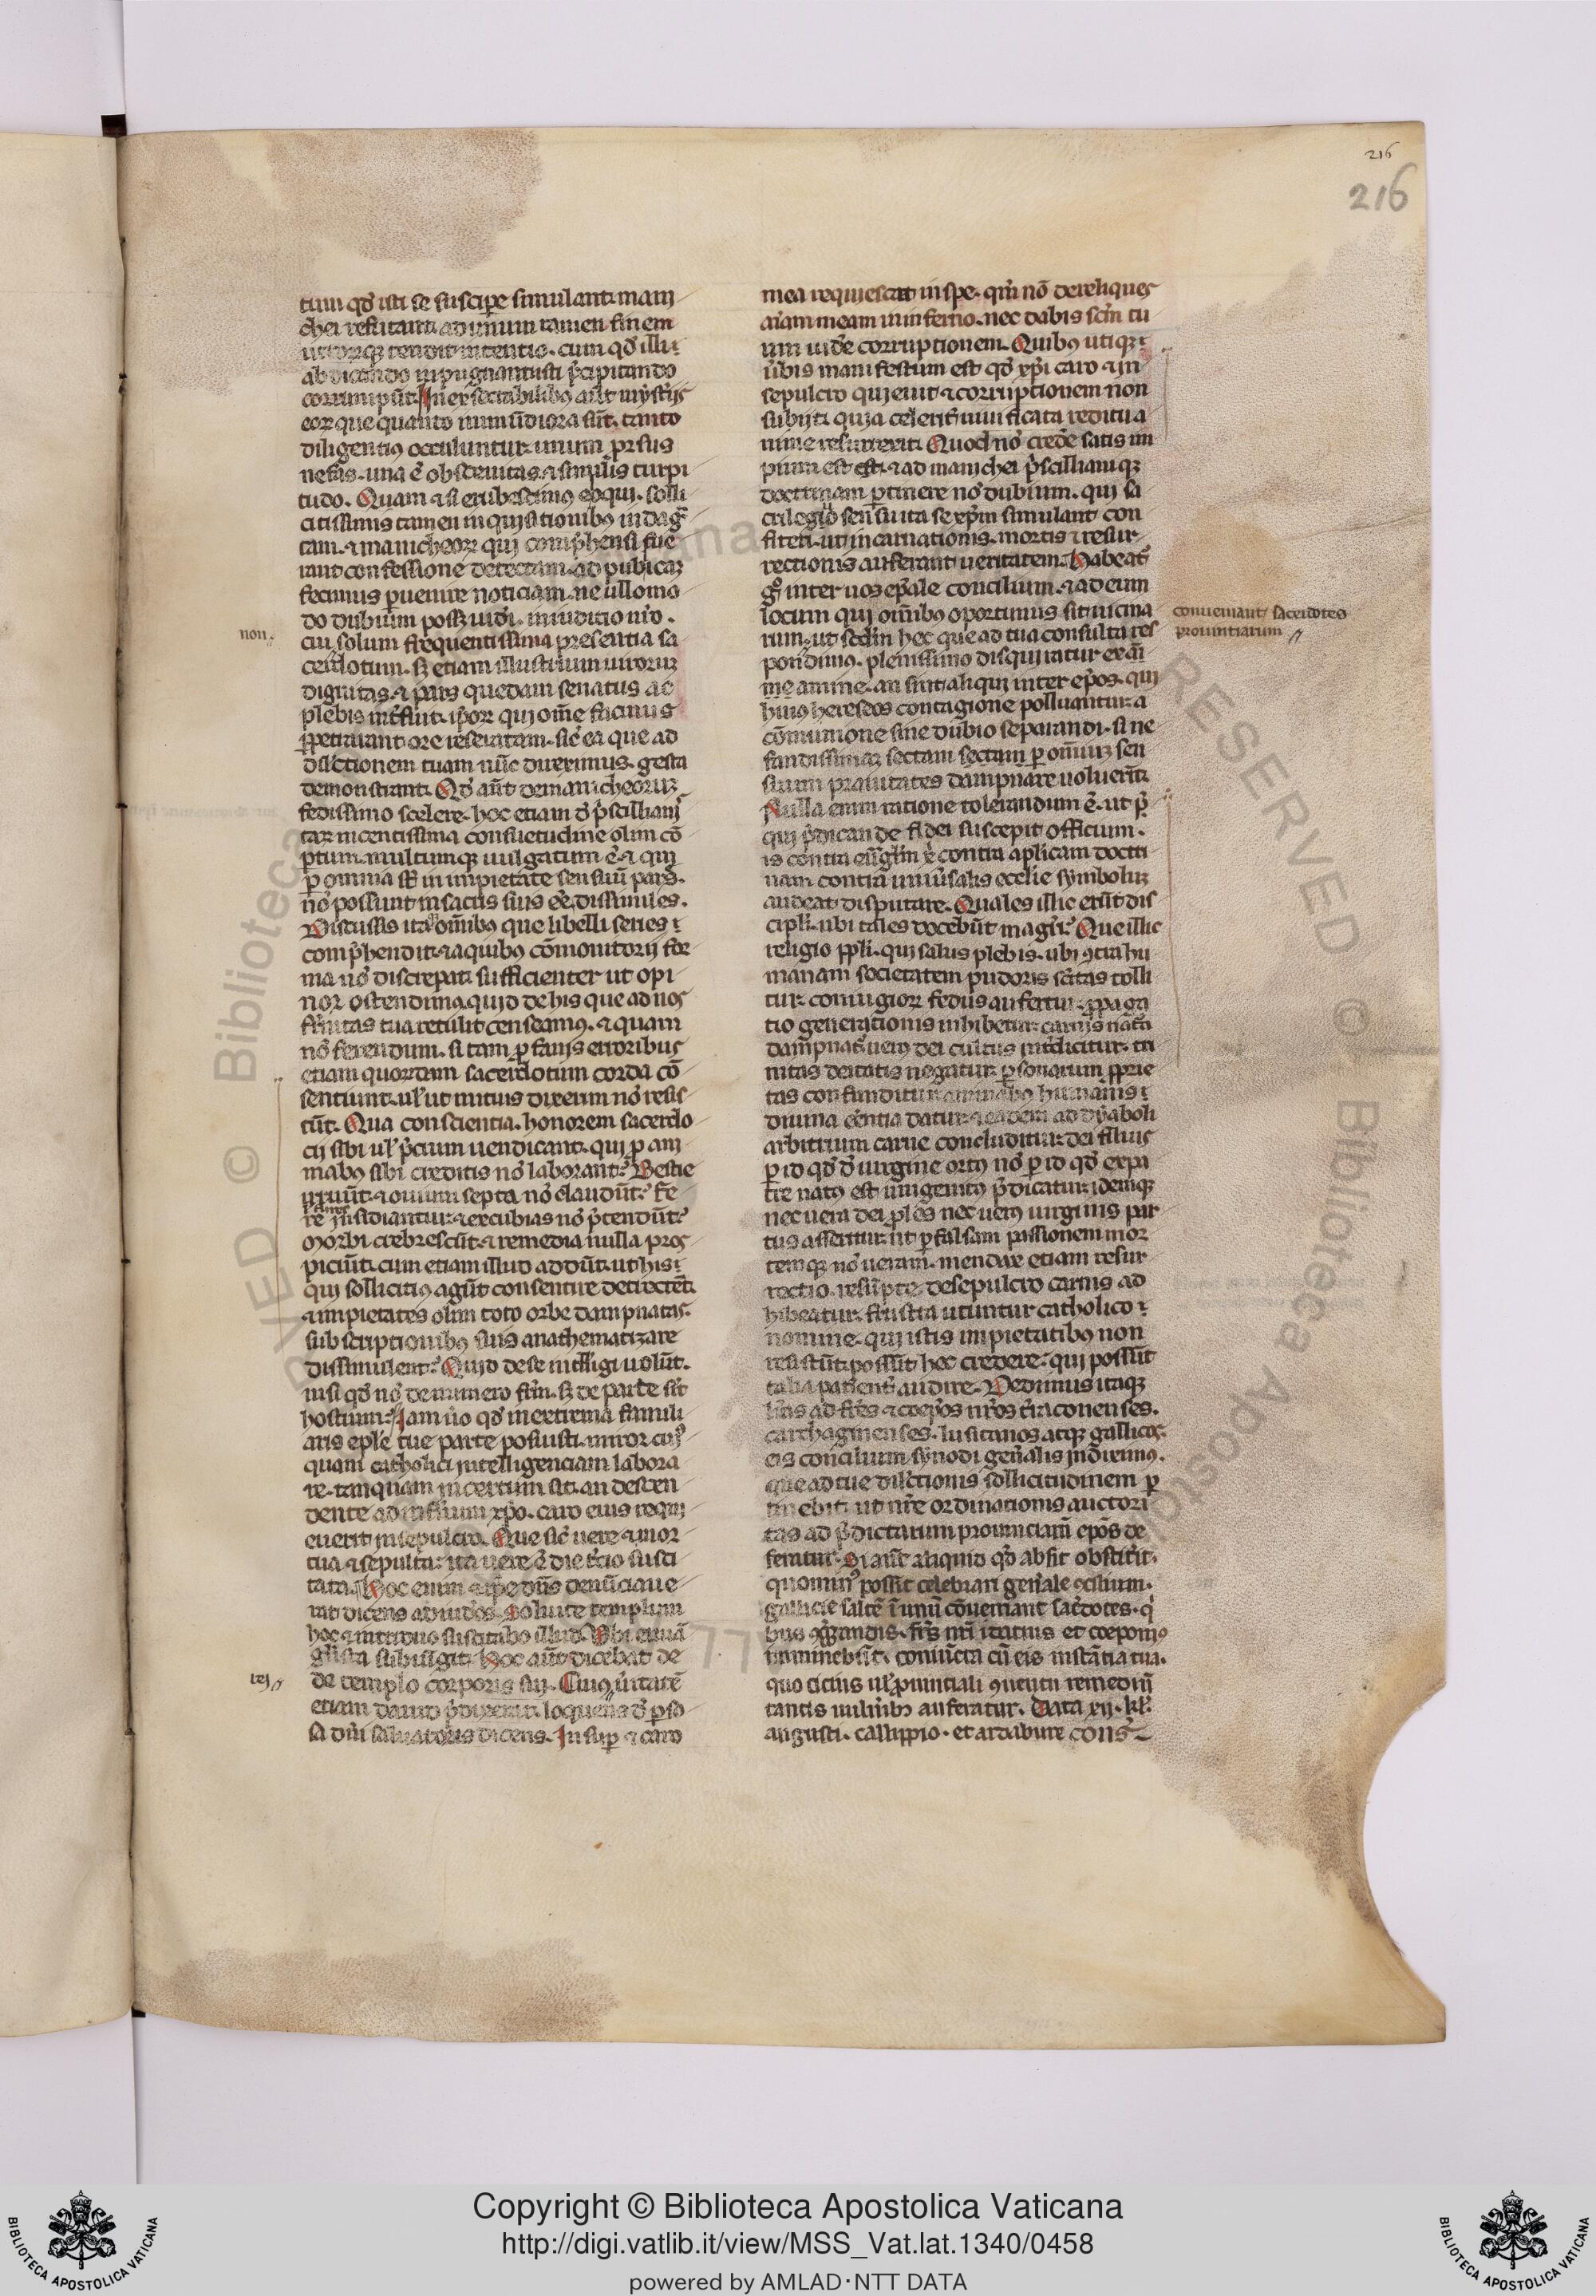 216
216
tum qd' isti se suscipe simulant. mani
chei refutant. ad unum tamen finem
utrorq; tendit intentio. cum qd' illi
abdicando inpugnant. isti p̃cipitando
corrumpūt. In exsecrabilibꝰ aūt mysterijs
eorꝝ que quanto inmūdiora sūt. tanto
diligentiꝰ occuluntur. unum prorsus
nefas. una ē obscenitas. & similis turpi
tudo. Quam & si erubescimꝰ eloqui. solli
citissimis tamen inquisitionibꝰ indaga
tam. & manicheorꝝ qui comp̃hensi fue
rant confessione detectam. ad publicaꝫ
fecimus ꝑuenire noticiam. ne ullo mo
do dubium possꝫ uidi. in iuditio nr̃o.
non.
cui solum frequentissima presentia sa
cerdotum. sꝫ etiam illustrium uirorum
dignitas. & pars quedam senatus ac
plebis int̃fuit. ipsorꝝ qui om̃e facinus
ꝑpetrarant ore reseratam. sic̃ ea que ad
dilectionem tuam nūc direximus. gesta
demonstrant. Qd' aūt de manicheorꝝ
fedissimo scelere. hoc etiam d' p̃scilliani
tarꝝ incentissima consuetudine olim cō
ptum. multumq; uulgatum ē. & qui
ꝑ omnia sūt in impietate sensuū pares.
nō possunt in sacris suis eē dissimiles.
Discussis itaq; om̃ibꝰ que libelli series
comp̃hendit. & a quibꝰ cōmonitorij for
ma nō discrepat. sufficienter ut opi
nor ostendimꝰ quid de his que ad nos
fr̃nitas tua retulit censeamꝰ. & quam
nō ferendum. si tam ꝓfanis erroribus
etiam quorꝝdam sacerdotum corda cō
sentiunt. ul' ut mitius dixerim nō resis
tūt. Qua conscientia. honorem sacerdo
cij sibi ul' p̃cium uendicant. qui ꝓ ani
mabꝰ sibi creditis nō laborant? Bestie
irruūt. & ouium septa nō claudūt? Fu
res insidiantur. & excubias nō p̃tendūt?
Morbi crebrescūt. & remedia nulla pros
piciūt. cum etiam illud addūt. ut his
qui sollicitiꝰ agūt consentire detrectēt.
& impietates olim toto orbe dampnatas.
subscriptionibꝰ suis anathematizare
dissimulent? Quid de se intell'igi uolūt.
nisi qd' nō de numero fr̃m. sꝫ de parte sūt
hostium? Iam ũo qd' in extrema famili
aris ep̃le tue parte posuisti. miror cuiꝰ
quam catholici intelligenciam labora
re. tanquam incertum sit. an descen
dente ad infernum xp̃o. caro eius requi
euerit in sepulcro. Que sic̃ uere & mor
tua & sepulta: ita uere ē die t̃cio susci
tata. Hoc enim & ip̃e dn̄s denūciaue
rat dicens ad iud'os. Soluite templum
hoc & in triduo suscitabo illud. Vbi euuā
glista subiūgit. Hoc aūt dicebat de
rej
de templo corporis sui. Cuiꝰ ũitatē
etiam dauid p̃dixerat. loquens d' ꝑso
sa dn̄i saluatoris dicens. Insuꝑ & caro
mea requiescet in spe. qm̃ nō derelinques
aīam meam in inferno. nec dabis scm̃ tu
um uid'e corruptionem. Quibꝰ utiq;
ũbis manifestum est qd' xp̃i caro & in
sepulcro quieuit. & corruptionem non
subijt. quia celerit̃ uiuificata reditu a
nime resurrexit. Quod nō cred'e satis im
pium est. & ad manichei p̃scillianiq;
doctrinam ꝑtinere nō dubium. qui sa
crilego sensu ita se xp̃m simulant con
fiteri. ut incarnationis. mortis & resur
rectionis auferant ueritatem. Habeat̃
gͦ inter uos ep̃ale concilium. & ad eum
locum qui om̃ibꝰ oportunus sit uicina
conueniant sacerdotes
prouintiarum
rum. ut scdm̃ hec que ad tua consulta res
pondimꝰ. plenissimo disquiratur exam̃
me amine. an sint aliqui inter ep̃os. qui
huiꝰ hereseos contagione polluantur. a
cōmunione sine dubio separandi. si ne
fandissimaꝫ sectam sectam ꝑ om̃iuꝫ sen
suum prauitates dampnare uoluerīt.
Nulla enim ratione tolerandum ē. ut p̃
qui p̃dicande fidei suscepit officium.
is contra euūglm̃ xp̃i contra aplicam doctri
nam contra uniũsalis ecclie symboluꝫ
audeat disputare. Quales illic erūt dis
cipli. ubi tales docebūt magr̃i? Que illic
religio ppli. qui salus plebis. ubi ꝯtra hu
manam societatem pudoris sc̃itas tolli
tur. coniugiorꝝ fedus aufertur. ꝓpaga
tio generationis inhibetur. carnis nat̃a
dampnat̃. ueriꝰ dei cultus int̃dicitur. tri
nitas deitatis negatur. ꝑsonarum ꝓprie
tas confunditur. animabꝰ humanis
diuina eēntia datur. & eadem ad dyaboli
arbitrium carne concluditur. dei filius
ꝑ id qd' d' uirgine ortꝰ nō ꝑ id qd' ex pa
tre natꝰ est unigenitꝰ p̃dicatur. idemq;
nec uera dei ꝓles nec uerꝰ uirginis par
tus asseritur. ut ꝑ falsam passionem mor
temq; nō ueram. mendax etiam resur
rectio. resūpte de sepulcro carnis ad
hibeatur. frustra utuntur catholico
nomine. qui istis impietatibꝰ non
resistūt. possūt hoc credere. qui possūt
talia patient̃ audire. Dedimus itaq;
lr̃as ad fr̃es & coep̃os nr̃os t̃raconenses.
carthaginenses. lusitanos atq; gallicos.
eis concilium synodi gen̄alis indiximꝰ.
que ad tue dil'ctionis sollicitudinem ꝑ
tinebit. ut nr̃e ordinationis auctori
tas ad p̃dictarum prouinciarū ep̃os de
feratur. Si aūt aliquid qd' absit obstit̃it.
quominꝰ possit celebrari gen̄ale ꝯcilium.
gallicie saltē ī unū cōueniant sac̃dotes. qͥ
bus ꝯg̃gandis. fr̃es nr̃i itatius et coeponiꝰ
imminebūt. coniūcta cū eis instātia tua.
quo citius ul' prouintiali ꝯuentu remediū
tantis uuln̄ibꝰ auferatur. Data xij. kl'.
augusti. callippio. et ardabure cons̄
Copyright © Biblioteca Apostolica Vaticana
http://digi.vatlib.it/view/MSS_Vat.lat.1340/0458
powered by AMLAD·NTT DATA